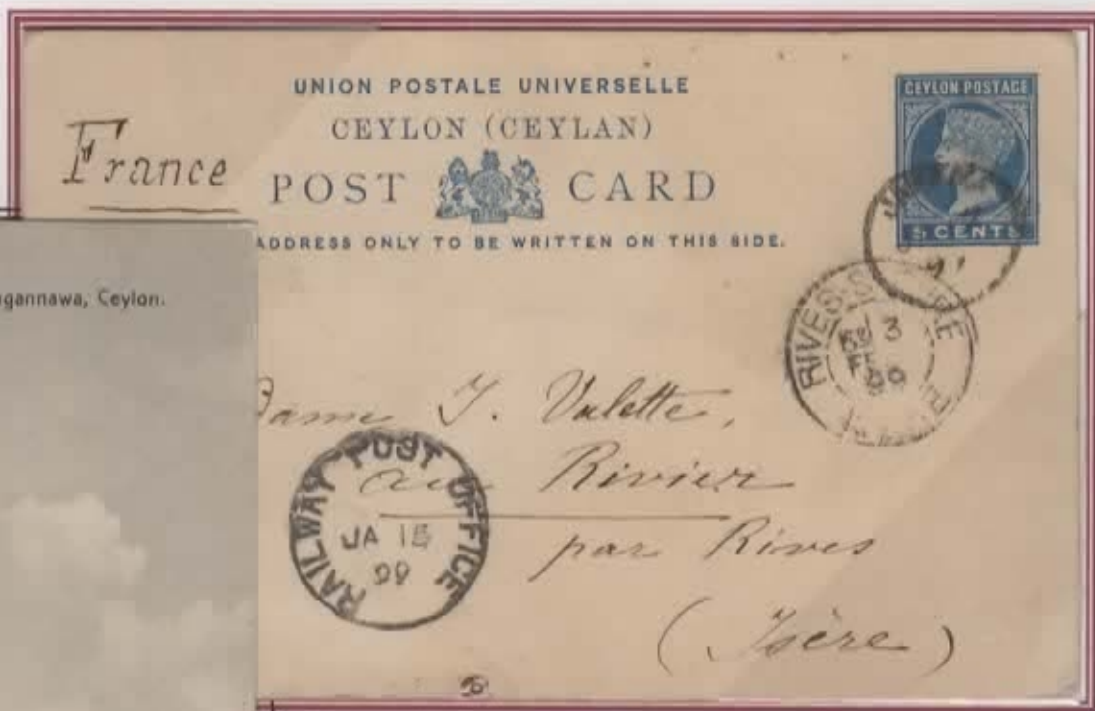 UNION POSTALE UNIVERSELLE
CEYLON (CEYLAN)
France
POST CARD
ADDRESS ONLY TO BE WRITTEN ON THIS SIDE.
CEYLON POSTAGE
5 CENTS
gannawa, Ceylon.
RIVES
13
dame J. Valette,
au Rivier
par Rives
(Isère)
RAILWAY POST OFFICE
JA 15
99